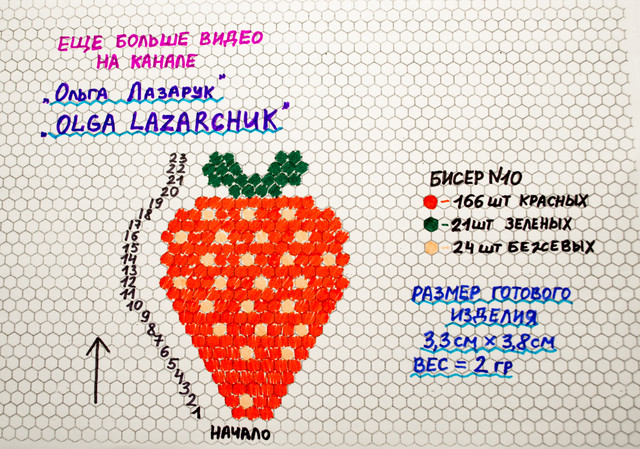 ЕЩЕ БОЛЬШЕ ВИДЕО
НА КАНАЛЕ
„Ольга Лазарук"
„OLGA LAZARCHUK"
23
22
21
20
19
18
17
16
15
14
13
12
11
10
9
8
7
6
5
4
3
2
1
НАЧАЛО
БИСЕР №10
- 166 ШТ КРАСНЫХ
- 21ШТ ЗЕЛЕНЫХ
- 24 ШТ БЕЖЕВЫХ
РАЗМЕР ГОТОВОГО
ИЗДЕЛИЯ
3,3 СМ × 3,8 СМ
ВЕС = 2 ГР